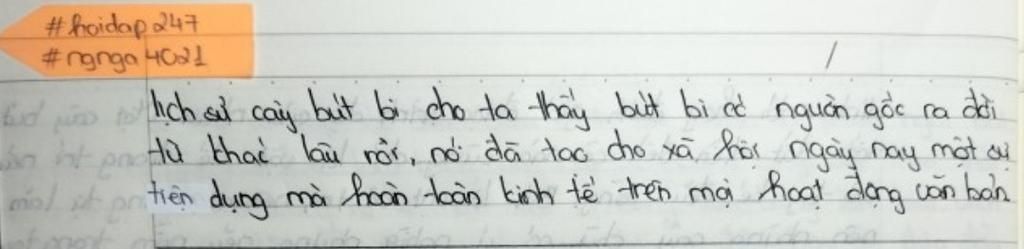 #hoidap247
#ngnga4021
lịch sử cây bút bi cho ta thấy bút bi có nguồn gốc ra đời
từ khá lâu rồi, nó đã tạo cho xã hội ngày nay một sự
tiện dụng mà hoàn toàn kinh tế trên mọi hoạt động văn bản